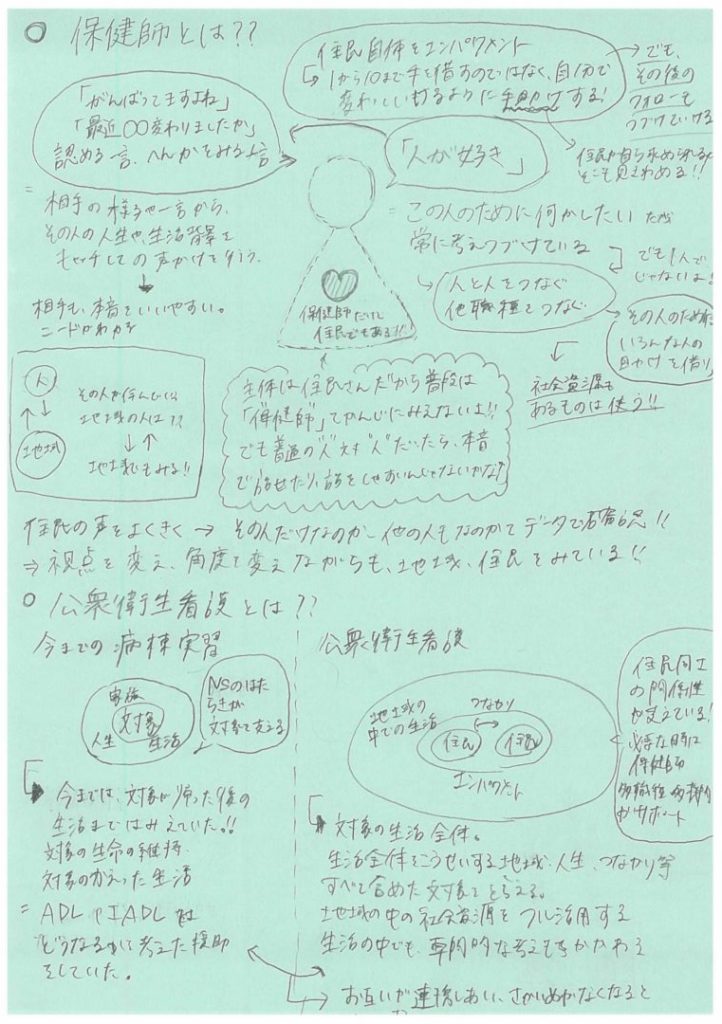 ○ 保健師とは??
住民自体をエンパワメント
↳1から10まで手を借すのではなく、自分で
変わっていけるように手助けする!
→でも、
その後の
フォローも
つづけていける
「がんばってますよね」
「最近〇〇変わりましたか」
認める一言、へんかをみる一言
「人が好き」
住民が自ら求められるか
そこも見きわめる!!
= 相手の様子や一言から、
その人の人生や、生活背景を
キャッチしての声かけを行う。
↓
相手も、本音をいいやすい。
ニードがわかる
= この人のために何かしたい
常に考えつづけている
でも1人で
じゃないよ!
人と人をつなぐ
他職種をつなぐ
その人のため
いろんな人の
目かけを借り
社会資源も
あるものは使う!!
保健師だけど
住民でもある!!
人
↑↓
地域
その人が住んでいる
地域の人は??
↓↑
地域もみる!!
主体は住民さんだから普段は
「保健師」てかんじにみえないよ!!
でも普通の"人"対"人"だったら、本音
で話せたり、話をしやすいんじゃないかな?
住民の声をよくきく → その人だけなのか、他の人もなのかてデータで確認!!
⇒ 視点を変え、角度を変えながらも、地域、住民をみている!!
○ 公衆衛生看護とは??
今までの病棟実習
家族
対象
人生 生活
NSのはた
らきが
対象を支える
↳ 今までは、対象が帰った後の
生活まではみえていた。!!
対象の生命の維持、
対象のかえった生活
= ADLやIADLは
どうなるかって考えた援助
をしていた。
公衆衛生看護
地域の
中での生活
つながり
住民 住民
エンパワメント
住民同士
の関係性
が支えている!
必要な時に
保健師
多職種多機関
がサポート
↳ 対象の生活全体。
生活全体をこうせいする地域、人生、つながり等
すべて含めた対象をとらえる。
地域の中の社会資源をフル活用する
生活の中でも、専門的な考えをもちかかわる
→ お互いが連携しあい、さかいめがなくなると